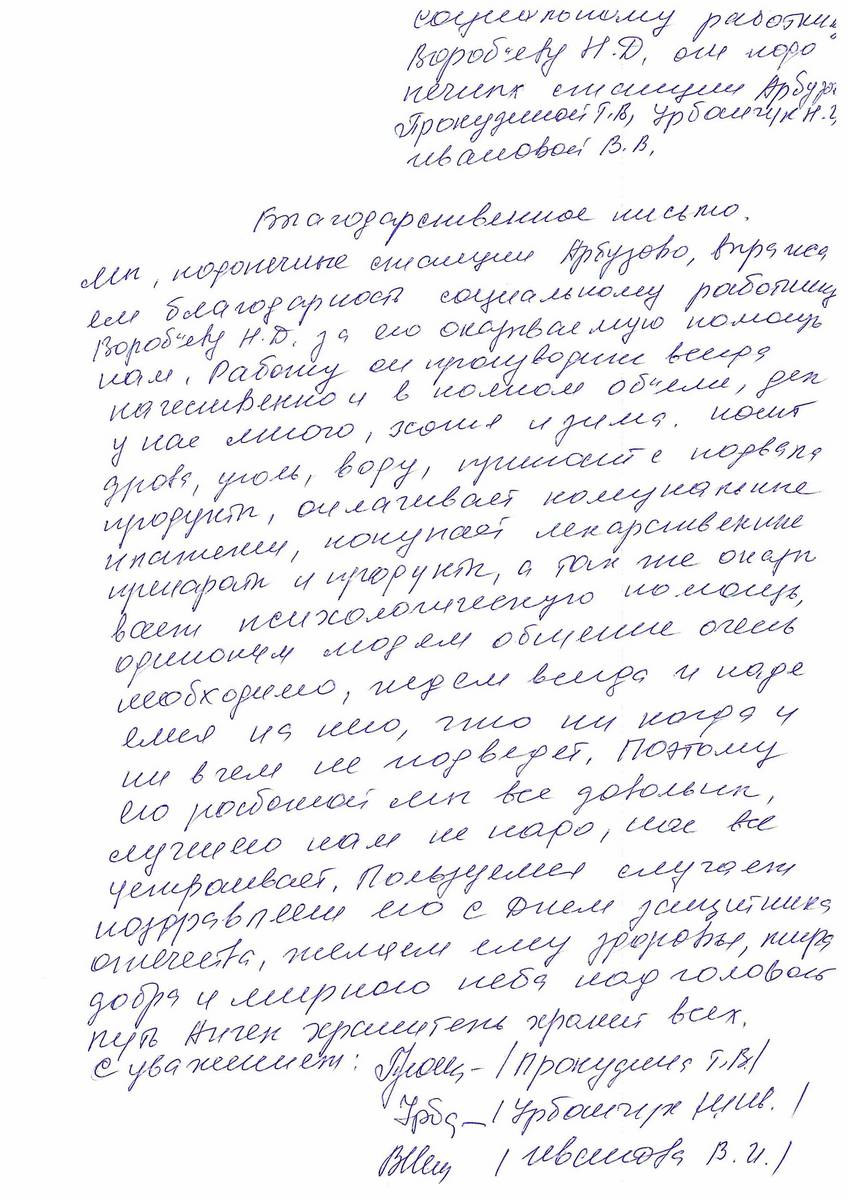 социальному работни
Воробьёву Н.Д. от подо
печных станции Арбузо
Прокудиной Т.В, Урбанчук Н.
Ивановой В.В.
Благодарственное письмо.
Мы, подопечные станции Арбузово, выража
ем благодарность социальному работнику
Воробьёву Н.Д. за его оказываемую помощь
нам. Работу он производит всегда
качественно и в полном объеме, дел
у нас много, хотя и зима. Носит
дрова, уголь, воду, приносит с подвала
продукты, оплачивает комунальные
платежи, покупает лекарственные
препараты и продукты, а так же оказы
вает психологическую помощь,
одиноким людям общение очень
необходимо, ждем всегда и наде
емся на него, что ни когда и
ни в чем не подведет. Поэтому
его работой мы все довольны,
лучшего нам не надо, нас все
устраивает. Пользуемся случаем
поздравляем его с Днем защитника
отечества, желаем ему здоровья, мира
добра и мирного неба над головой
пусть Ангел хранитель хранит всех.
С уважением: /Прокудина Т.В./
/Урбанчук /
/Иванова В.И./